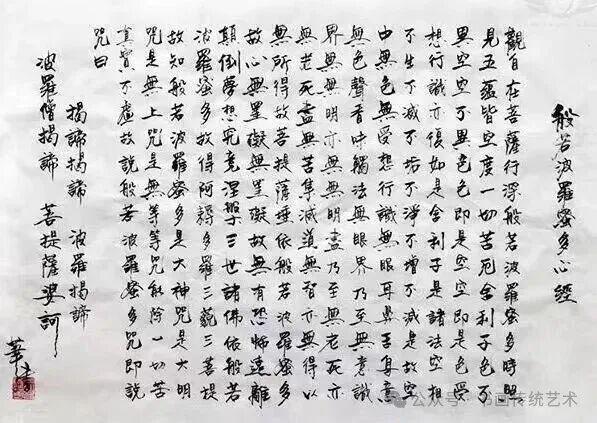 般若波羅蜜多心經
觀自在菩薩行深般若波羅蜜多時照
見五蘊皆空度一切苦厄舍利子色不
異空空不異色色即是空空即是色受
想行識亦復如是舍利子是諸法空相
不生不滅不垢不淨不增不減是故空
中無色無受想行識無眼耳鼻舌身意
無色聲香味觸法無眼界乃至無意識
界無無明亦無無明盡乃至無老死亦
無老死盡無苦集滅道無智亦無得以
無所得故菩提薩埵依般若波羅蜜多
故心無罣礙無罣礙故無有恐怖遠離
顛倒夢想究竟涅槃三世諸佛依般若
波羅蜜多故得阿耨多羅三藐三菩提
故知般若波羅蜜多是大神咒是大明
咒是無上咒是無等等咒能除一切苦
真實不虛故說般若波羅蜜多咒即說
咒曰
揭諦揭諦 波羅揭諦
波羅僧揭諦 菩提薩婆訶
公众号·书画传统艺术